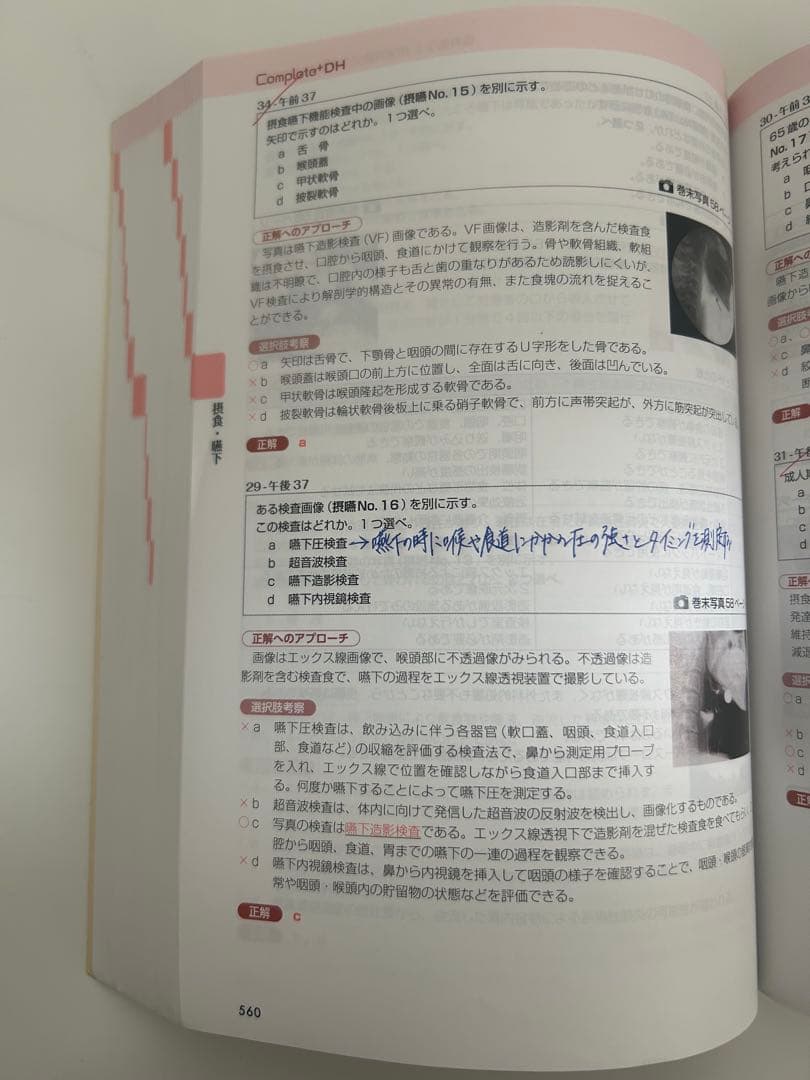 Complete+DH
34-午前37
摂食嚥下機能検査中の画像(摂嚥No.15)を別に示す。
矢印で示すのはどれか。1つ選べ。
a 舌 骨
b 喉頭蓋
c 甲状軟骨
d 披裂軟骨
巻末写真58ページ
正解へのアプローチ
写真は嚥下造影検査(VF)画像である。VF画像は、造影剤を含んだ検査食
を摂食させ、口腔から咽頭、食道にかけて観察を行う。骨や軟骨組織、軟組
織は不明瞭で、口腔内の様子も舌と歯の重なりがあるため読影しにくいが、
VF検査により解剖学的構造とその異常の有無、また食塊の流れを捉えるこ
とができる。
選択肢考察
○a 矢印は舌骨で、下顎骨と咽頭の間に存在するU字形をした骨である。
×b 喉頭蓋は喉頭口の前上方に位置し、全面は舌に向き、後面は凹んでいる。
×c 甲状軟骨は喉頭隆起を形成する軟骨である。
×d 披裂軟骨は輪状軟骨後板上に乗る硝子軟骨で、前方に声帯突起が、外方に筋突起が突出している
正解 a
摂食・嚥下
29-午後37
ある検査画像(摂嚥No.16)を別に示す。
この検査はどれか。1つ選べ。
a 嚥下圧検査→嚥下の時にの喉や食道にかかる圧の強さとタイミングを測定
b 超音波検査
c 嚥下造影検査
d 嚥下内視鏡検査
巻末写真58ページ
正解へのアプローチ
画像はエックス線画像で、喉頭部に不透過像がみられる。不透過像は造
影剤を含む検査食で、嚥下の過程をエックス線透視装置で撮影している。
選択肢考察
×a 嚥下圧検査は、飲み込みに伴う各器官(軟口蓋、咽頭、食道入口
部、食道など)の収縮を評価する検査法で、鼻から測定用プローブ
を入れ、エックス線で位置を確認しながら食道入口部まで挿入す
る。何度か嚥下することによって嚥下圧を測定する。
×b 超音波検査は、体内に向けて発信した超音波の反射波を検出し、画像化するものである。
○c 写真の検査は嚥下造影検査である。エックス線透視下で造影剤を混ぜた検査食を食べてもらい
腔から咽頭、食道、胃までの嚥下の一連の過程を観察できる。
×d 嚥下内視鏡検査は、鼻から内視鏡を挿入して咽頭の様子を確認することで、咽頭・喉頭の
常や咽頭・喉頭内の貯留物の状態などを評価できる。
正解 c
560
30-午前
65歳の
No.17
考えられ
a
b
c
d
正解への
嚥下造
画像から
選択肢
○a、
×c
×d
正解
31-午
成人期
a
b
c
d
正解へ
摂食
発達
維持
減退
選択
○a
×b
○c
×d
正